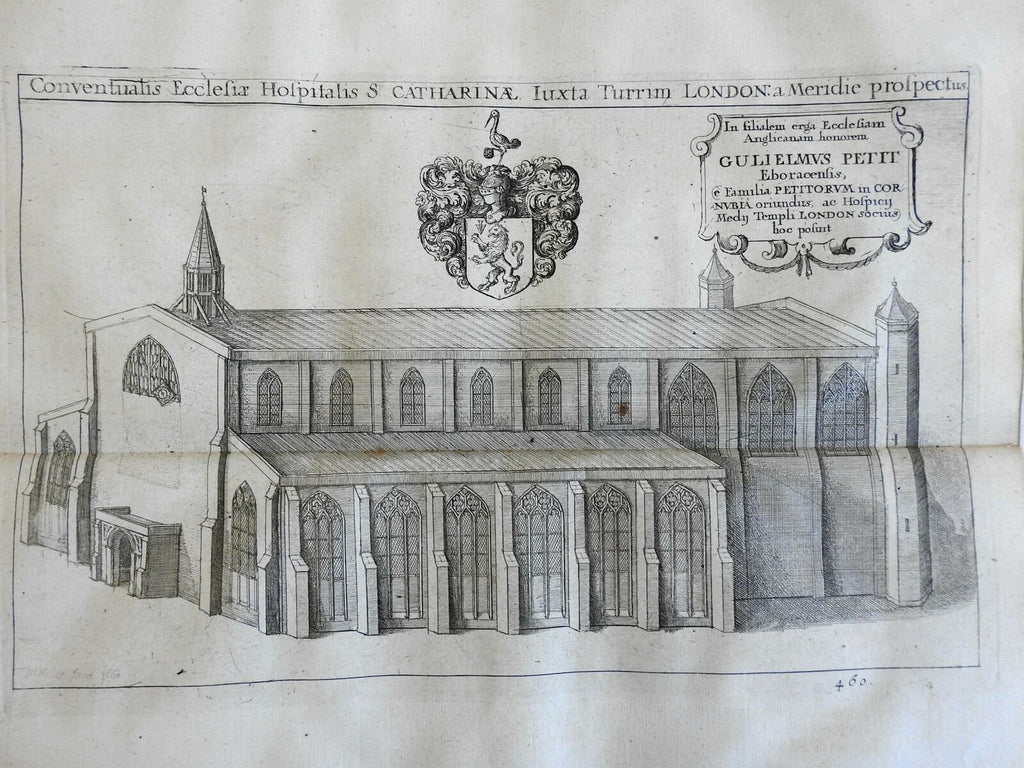 Conventualis Ecclesiæ Hospitalis S. CATHARINÆ. Iuxta Turrim LONDON: a Meridie prospectus
In filialem erga Ecclesiam
Anglicanam honorem
GULIELMVS PETIT
Eboracensis,
è Familia PETITORVM in COR
NVBIA oriundus, ac Hospicij
Medij Templi LONDON socius
hoc posuit
460.